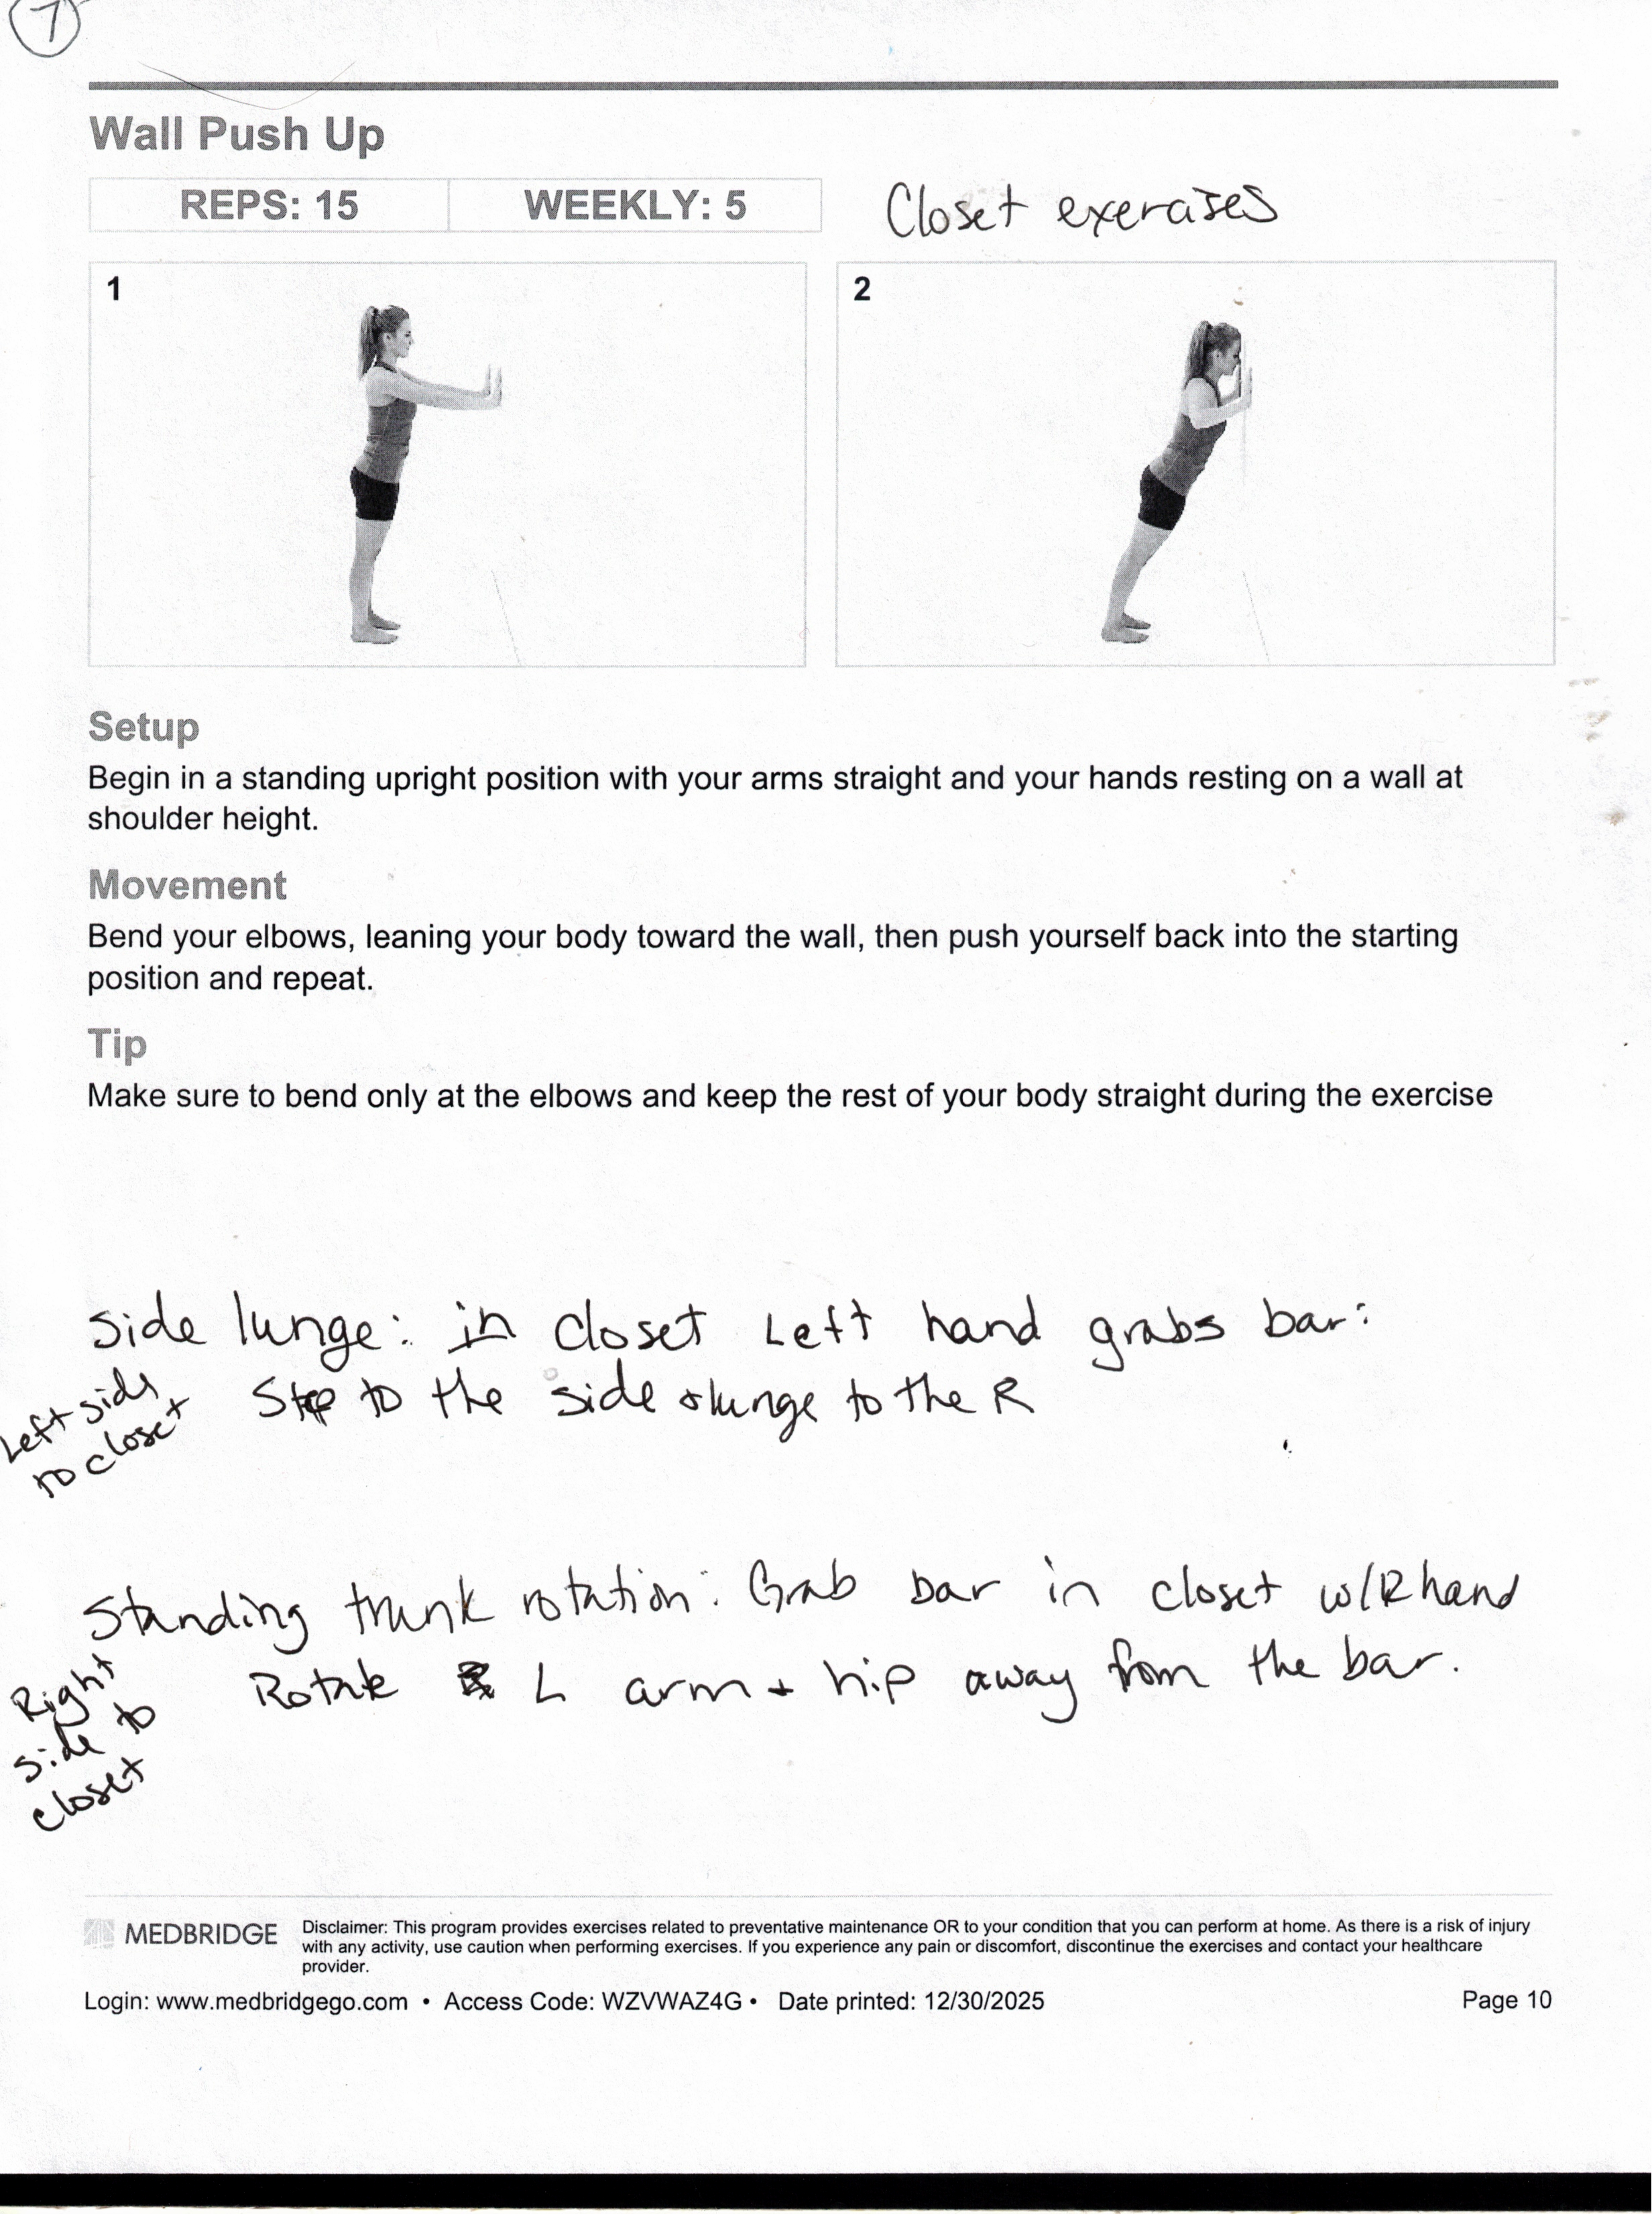 7
Wall Push Up
REPS: 15 WEEKLY: 5
Closet exercises
1 2
Setup
Begin in a standing upright position with your arms straight and your hands resting on a wall at
shoulder height.
Movement
Bend your elbows, leaning your body toward the wall, then push yourself back into the starting
position and repeat.
Tip
Make sure to bend only at the elbows and keep the rest of your body straight during the exercise
Side lunge: in closet Left hand grabs bar:
Step to the side + lunge to the R
Left side
to closet
Standing trunk rotation: Grab bar in closet w/R hand
Rotate L arm + hip away from the bar.
Right
side to
closet
MEDBRIDGE
Disclaimer: This program provides exercises related to preventative maintenance OR to your condition that you can perform at home. As there is a risk of injury
with any activity, use caution when performing exercises. If you experience any pain or discomfort, discontinue the exercises and contact your healthcare
provider.
Login: www.medbridgego.com • Access Code: WZVWAZ4G • Date printed: 12/30/2025 Page 10